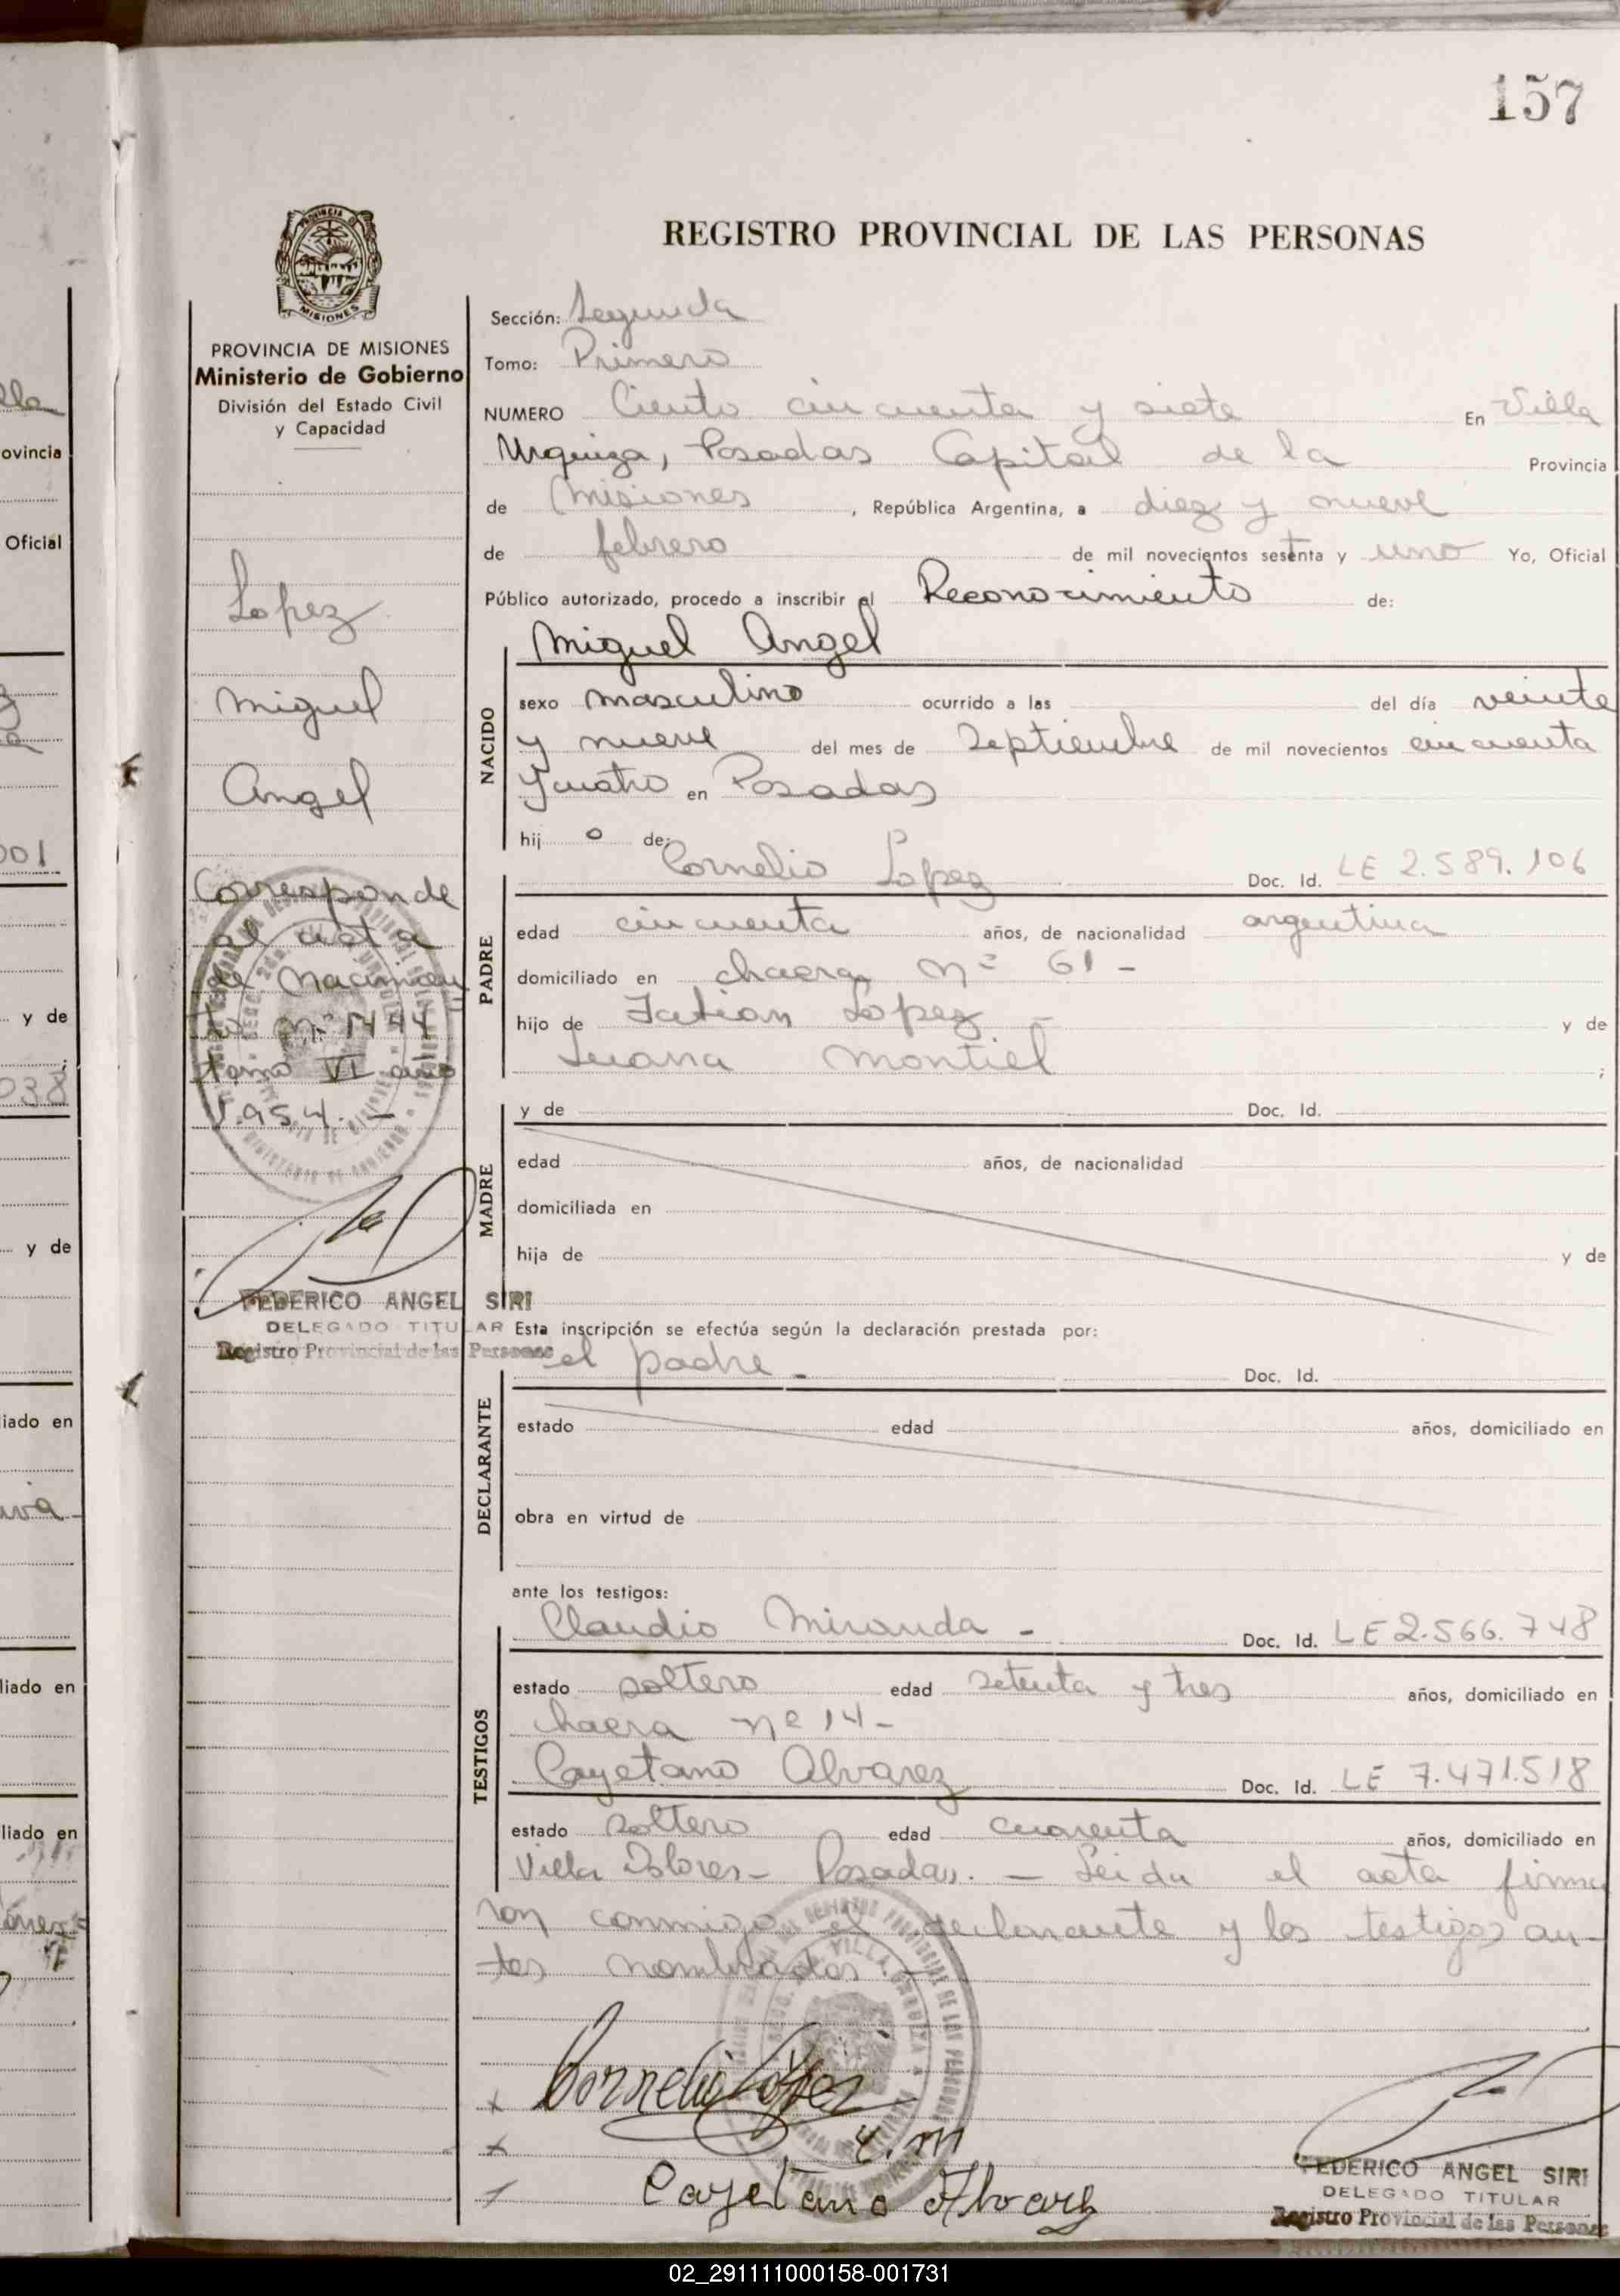 157
REGISTRO PROVINCIAL DE LAS PERSONAS
MISIONES
PROVINCIA DE MISIONES
Ministerio de Gobierno
División del Estado Civil
y Capacidad
Lopez
Miguel
Angel
Corresponde
al acta
de nacimien
to nº 1444
tomo VI año
1.954.-
FEDERICO ANGEL SIRI
DELEGADO TITULAR
Registro Provincial de las Personas
Sección: Segunda
Tomo: Primero
NUMERO Ciento cincuenta y siete En Villa
Urquiza, Posadas Capital de la Provincia
de Misiones, República Argentina, a diez y nueve
de febrero de mil novecientos sesenta y uno Yo, Oficial
Público autorizado, procedo a inscribir el Reconocimiento de:
NACIDO
Miguel Angel
sexo masculino ocurrido a las del día veinte
y nueve del mes de Septiembre de mil novecientos cincuenta
y cuatro en Posadas
hijo de:
PADRE
Cornelio Lopez Doc. Id. LE 2.589.106
edad cincuenta años, de nacionalidad argentina
domiciliado en chacra nº 61 -
hijo de Lopez y de
Juana Montiel ;
MADRE
y de Doc. Id.
edad años, de nacionalidad
domiciliada en
hija de y de
Esta inscripción se efectúa según la declaración prestada por:
DECLARANTE
el padre - Doc. Id.
estado edad años, domiciliado en
obra en virtud de
ante los testigos:
TESTIGOS
Claudio Miranda - Doc. Id. LE 2.566.748
estado soltero edad setenta y tres años, domiciliado en
chacra nº 14 -
Cayetano Alvarez Doc. Id. LE 7.471.518
estado soltero edad cuarenta años, domiciliado en
Villa Dolores - Posadas. - Leida el acta firma
ron conmigo el declarante y los testigos an-
tes nombrados.-
Cornelio López
C. M
Cayetano Alvarez
FEDERICO ANGEL SIRI
DELEGADO TITULAR
Registro Provincial de las Personas
02_291111000158-001731